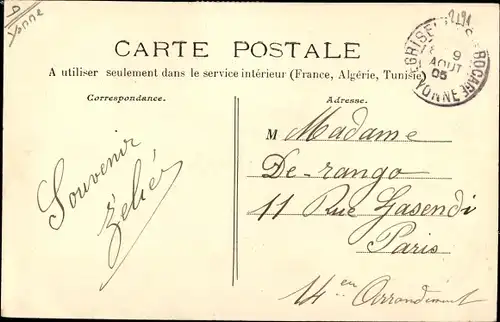 Yonne
2191
CARTE POSTALE
A utiliser seulement dans le service intérieur (France, Algérie, Tunisie)
9
AOUT
05
YONNE
Correspondance.
Adresse.
Souvenir
M Madame
De-rango
11 Rue Gasendi
Paris
14 en Arrondiment